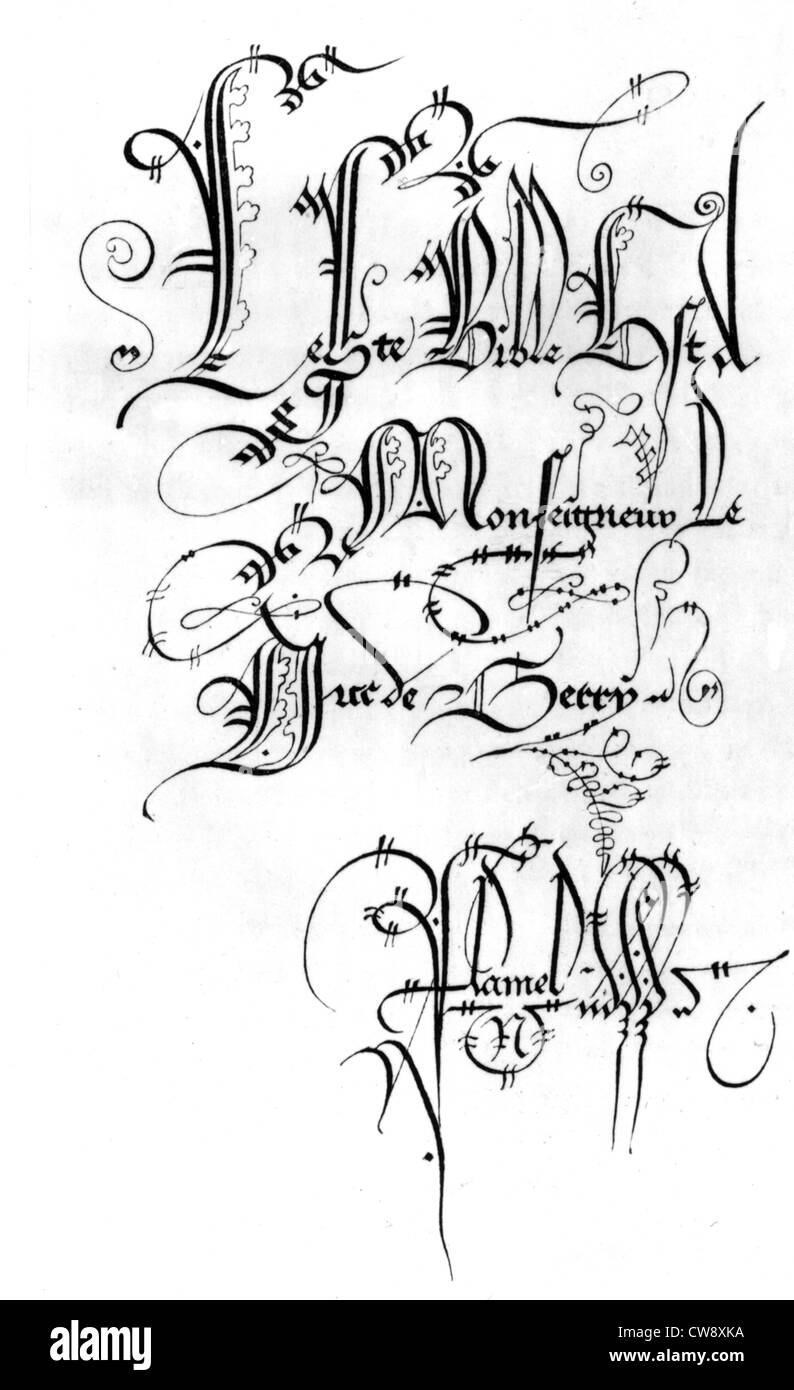 Leste Bible Est A
Monseigneur Le
Duc de Berry
Flamel
N
alamy
Image ID: CW8XKA
www.alamy.com